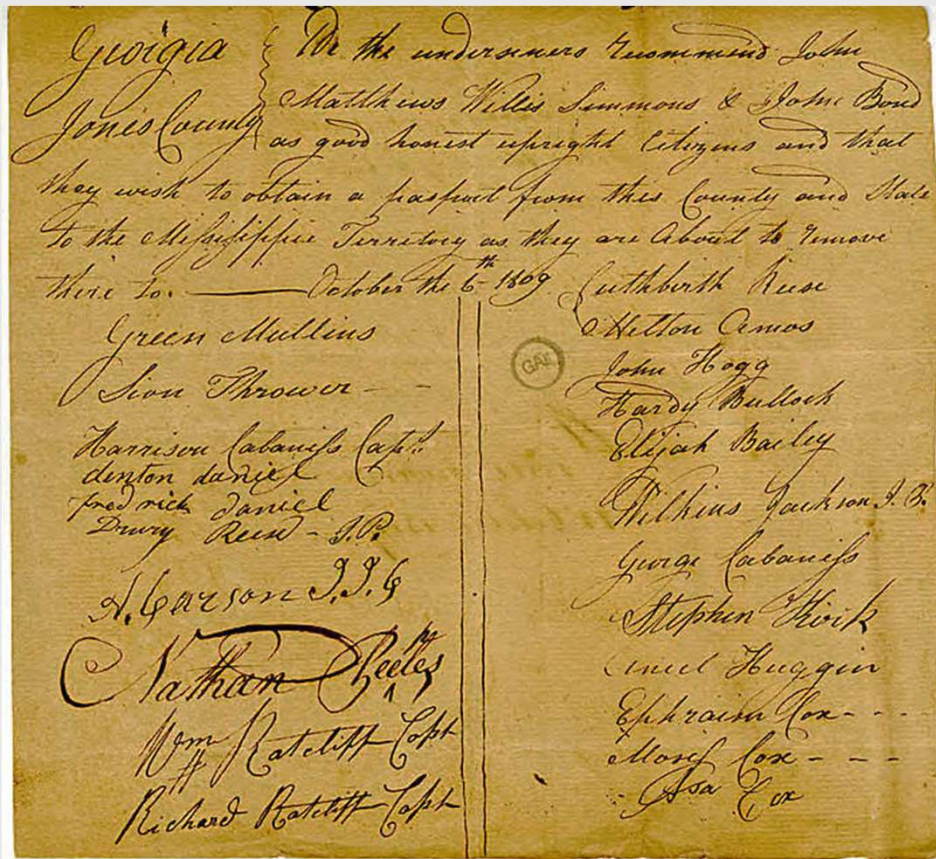 Georgia
Jones County
We the undersiners recommend John
Matthews Willis Simmons & John Bond
as good honest upright Citizens and that
they wish to obtain a pasport from this County and State
to the Missisippie Territory as they are About to remove
there to. October the 6th 1809
Green Mullins
Sion Thrower
Harrison Cabaniss Capt.
denton daniel
fredrick daniel
Drury Reese J.P.
A. Carson J.I.C
Nathan
Wm Ratcliff Capt
Richard Ratcliff Capt
Cuthbirth Reese
Hilton Amos
John Hogg
Hardy Bullock
Elijah Bailey
Wilkins Jackson J.P.
George Cabaniss
Stephen Kirk
Huggin
Ephraim Cox
Moses Cox
Asa Cox